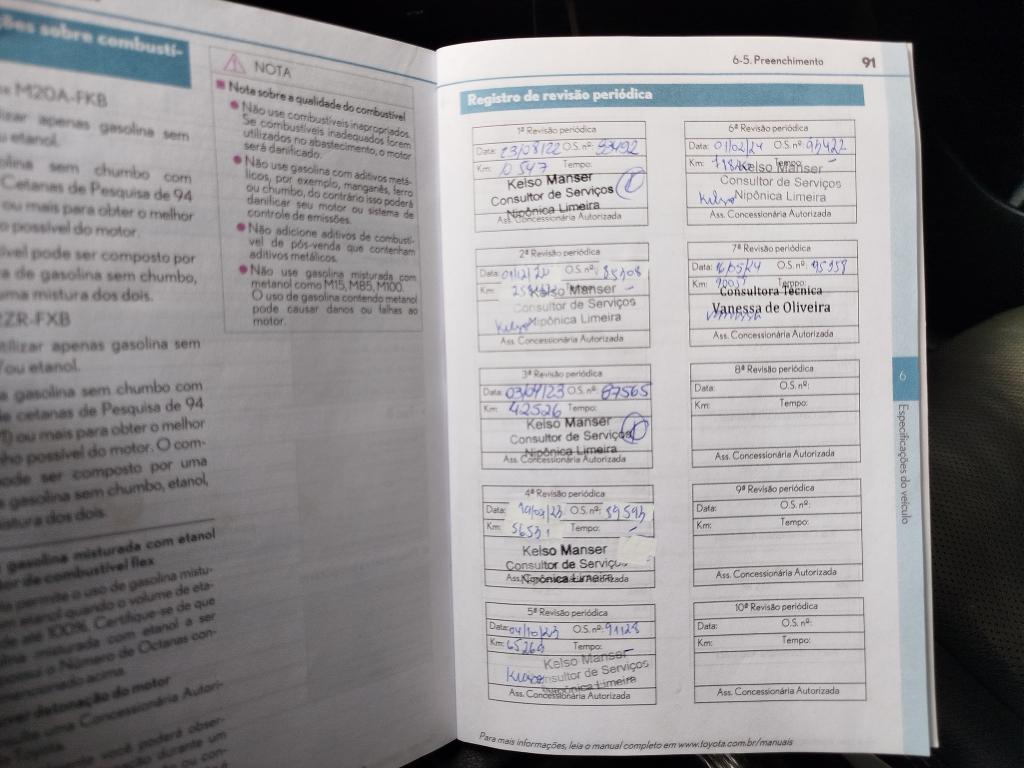 ções sobre combustí-
M20A-FKB
lizar apenas gasolina sem
u etanol.
olina sem chumbo com
Cetanas de Pesquisa de 94
ou mais para obter o melhor
o possível do motor.
ível pode ser composto por
ra de gasolina sem chumbo,
uma mistura dos dois.
2ZR-FXB
utilizar apenas gasolina sem
/ou etanol.
a gasolina sem chumbo com
de cetanas de Pesquisa de 94
ou mais para obter o melhor
nho possível do motor. O com-
pode ser composto por uma
e gasolina sem chumbo, etanol,
istura dos dois.
gasolina misturada com etanol
de combustível flex
permite o uso de gasolina mistu-
etanol quando o volume de eta-
até 100%. Certifique-se de que
misturada com etanol a ser
o Número de Octanas con-
acima.
detonação do motor
uma Concessionária Autori-
você poderá obser-
durante um
NOTA
Nota sobre a qualidade do combustível
Não use combustíveis inapropriados.
Se combustíveis inadequados forem
utilizados no abastecimento, o motor
será danificado.
Não use gasolina com aditivos metá-
licos, por exemplo, manganês, ferro
ou chumbo, do contrário isso poderá
danificar seu motor ou sistema de
controle de emissões.
Não adicione aditivos de combustí-
vel de pós-venda que contenham
aditivos metálicos.
Não use gasolina misturada com
metanol como M15, M85, M100.
O uso de gasolina contendo metanol
pode causar danos ou falhas ao
motor.
6-5. Preenchimento 91
Registro de revisão periódica
1ª Revisão periódica
Data: 23/08/22 O.S. nº: 83492
Km: 10547 Tempo:
Kelso Manser
Consultor de Serviços
Nipônica Limeira
Ass. Concessionária Autorizada
2ª Revisão periódica
Data: 01/12/22 O.S. nº: 85308
Km: Tempo:
Kelso Manser
Consultor de Serviços
Nipônica Limeira
Ass. Concessionária Autorizada
3ª Revisão periódica
Data: 03/04/23 O.S. nº: 87565
Km: 42526 Tempo:
Kelso Manser
Consultor de Serviços
Nipônica Limeira
Ass. Concessionária Autorizada
4ª Revisão periódica
Data: O.S. nº: 89593
Km: Tempo:
Kelso Manser
Consultor de Serviços
Nipônica Limeira
Ass. Concessionária Autorizada
5ª Revisão periódica
Data: 04/10/23 O.S. nº: 91128
Km: 65269 Tempo:
Kelso Manser
Consultor de Serviços
Nipônica Limeira
Ass. Concessionária Autorizada
6ª Revisão periódica
Data: 01/02/24 O.S. nº: 93422
Km: Tempo:
Kelso Manser
Consultor de Serviços
Nipônica Limeira
Ass. Concessionária Autorizada
7ª Revisão periódica
Data: 16/05/24 O.S. nº: 95359
Km:
Consultora Técnica
Vanessa de Oliveira
Ass. Concessionária Autorizada
8ª Revisão periódica
Data: O.S. nº:
Km: Tempo:
Ass. Concessionária Autorizada
9ª Revisão periódica
Data: O.S. nº:
Km: Tempo:
Ass. Concessionária Autorizada
10ª Revisão periódica
Data: O.S. nº:
Km: Tempo:
Ass. Concessionária Autorizada
6
Especificações do veículo
Para mais informações, leia o manual completo em www.toyota.com.br/manuais